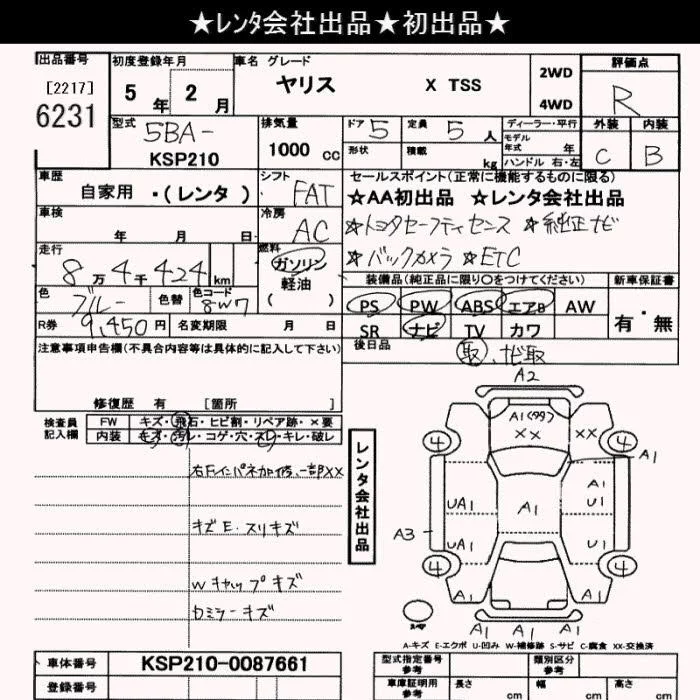 ★レンタ会社出品★初出品★
出品番号
[2217]
6231
初度登録年月
5 年 2 月
車名 グレード
ヤリス X TSS
2WD
4WD
評価点
R
外装 内装
C B
型式
5BA-
KSP210
排気量
1000 cc
ドア 5
定員 5 人
形状
積載 kg
ディーラー・平行
モデル年式 年
ハンドル 右・左
車歴
自家用 ・(レンタ)
シフト
FAT
車検
年 月 日
冷房
AC
走行
8万4千424 km
燃料
ガソリン
軽油
( )
色
ブルー
色替
色コード
8W7
R券 9,450円
名変期限 月 日
セールスポイント(正常に機能するものに限る)
★AA初出品 ★レンタ会社出品
☆トヨタセーフティセンス ☆純正ナビ
☆バックカメラ ☆ETC
装備品(純正品に限り○をつけてください)
PS PW ABS エアB AW
SR ナビ TV カワ
新車保証書
有・無
後日品
取、ナビ取
注意事項申告欄(不具合内容等は具体的に記入して下さい)
修復歴 有 [箇所 ]
検査員
記入欄
FW キズ・飛石・ヒビ割・リペア跡・×要
内装 キズ・汚レ・コゲ・穴・スレ・キレ・破レ
右Fインパネ加修、一部XX
キズE・スリキズ
Wキャップキズ
Dミラーキズ
レンタ会社出品
A2
A1(99)
XX XX
4 4
A1
A1
UA1 U1
A1
A3
UA1 U1
A1
4 4
A1 A1
A1 A1 A1
A-キズ E-エクボ U-凹み W-補修跡 S-サビ C-腐食 XX-交換済
車体番号 KSP210-0087661
登録番号
型式指定番号
参考
類別区分
参考
車庫証明用
参考
長さ cm
幅 cm
高さ cm